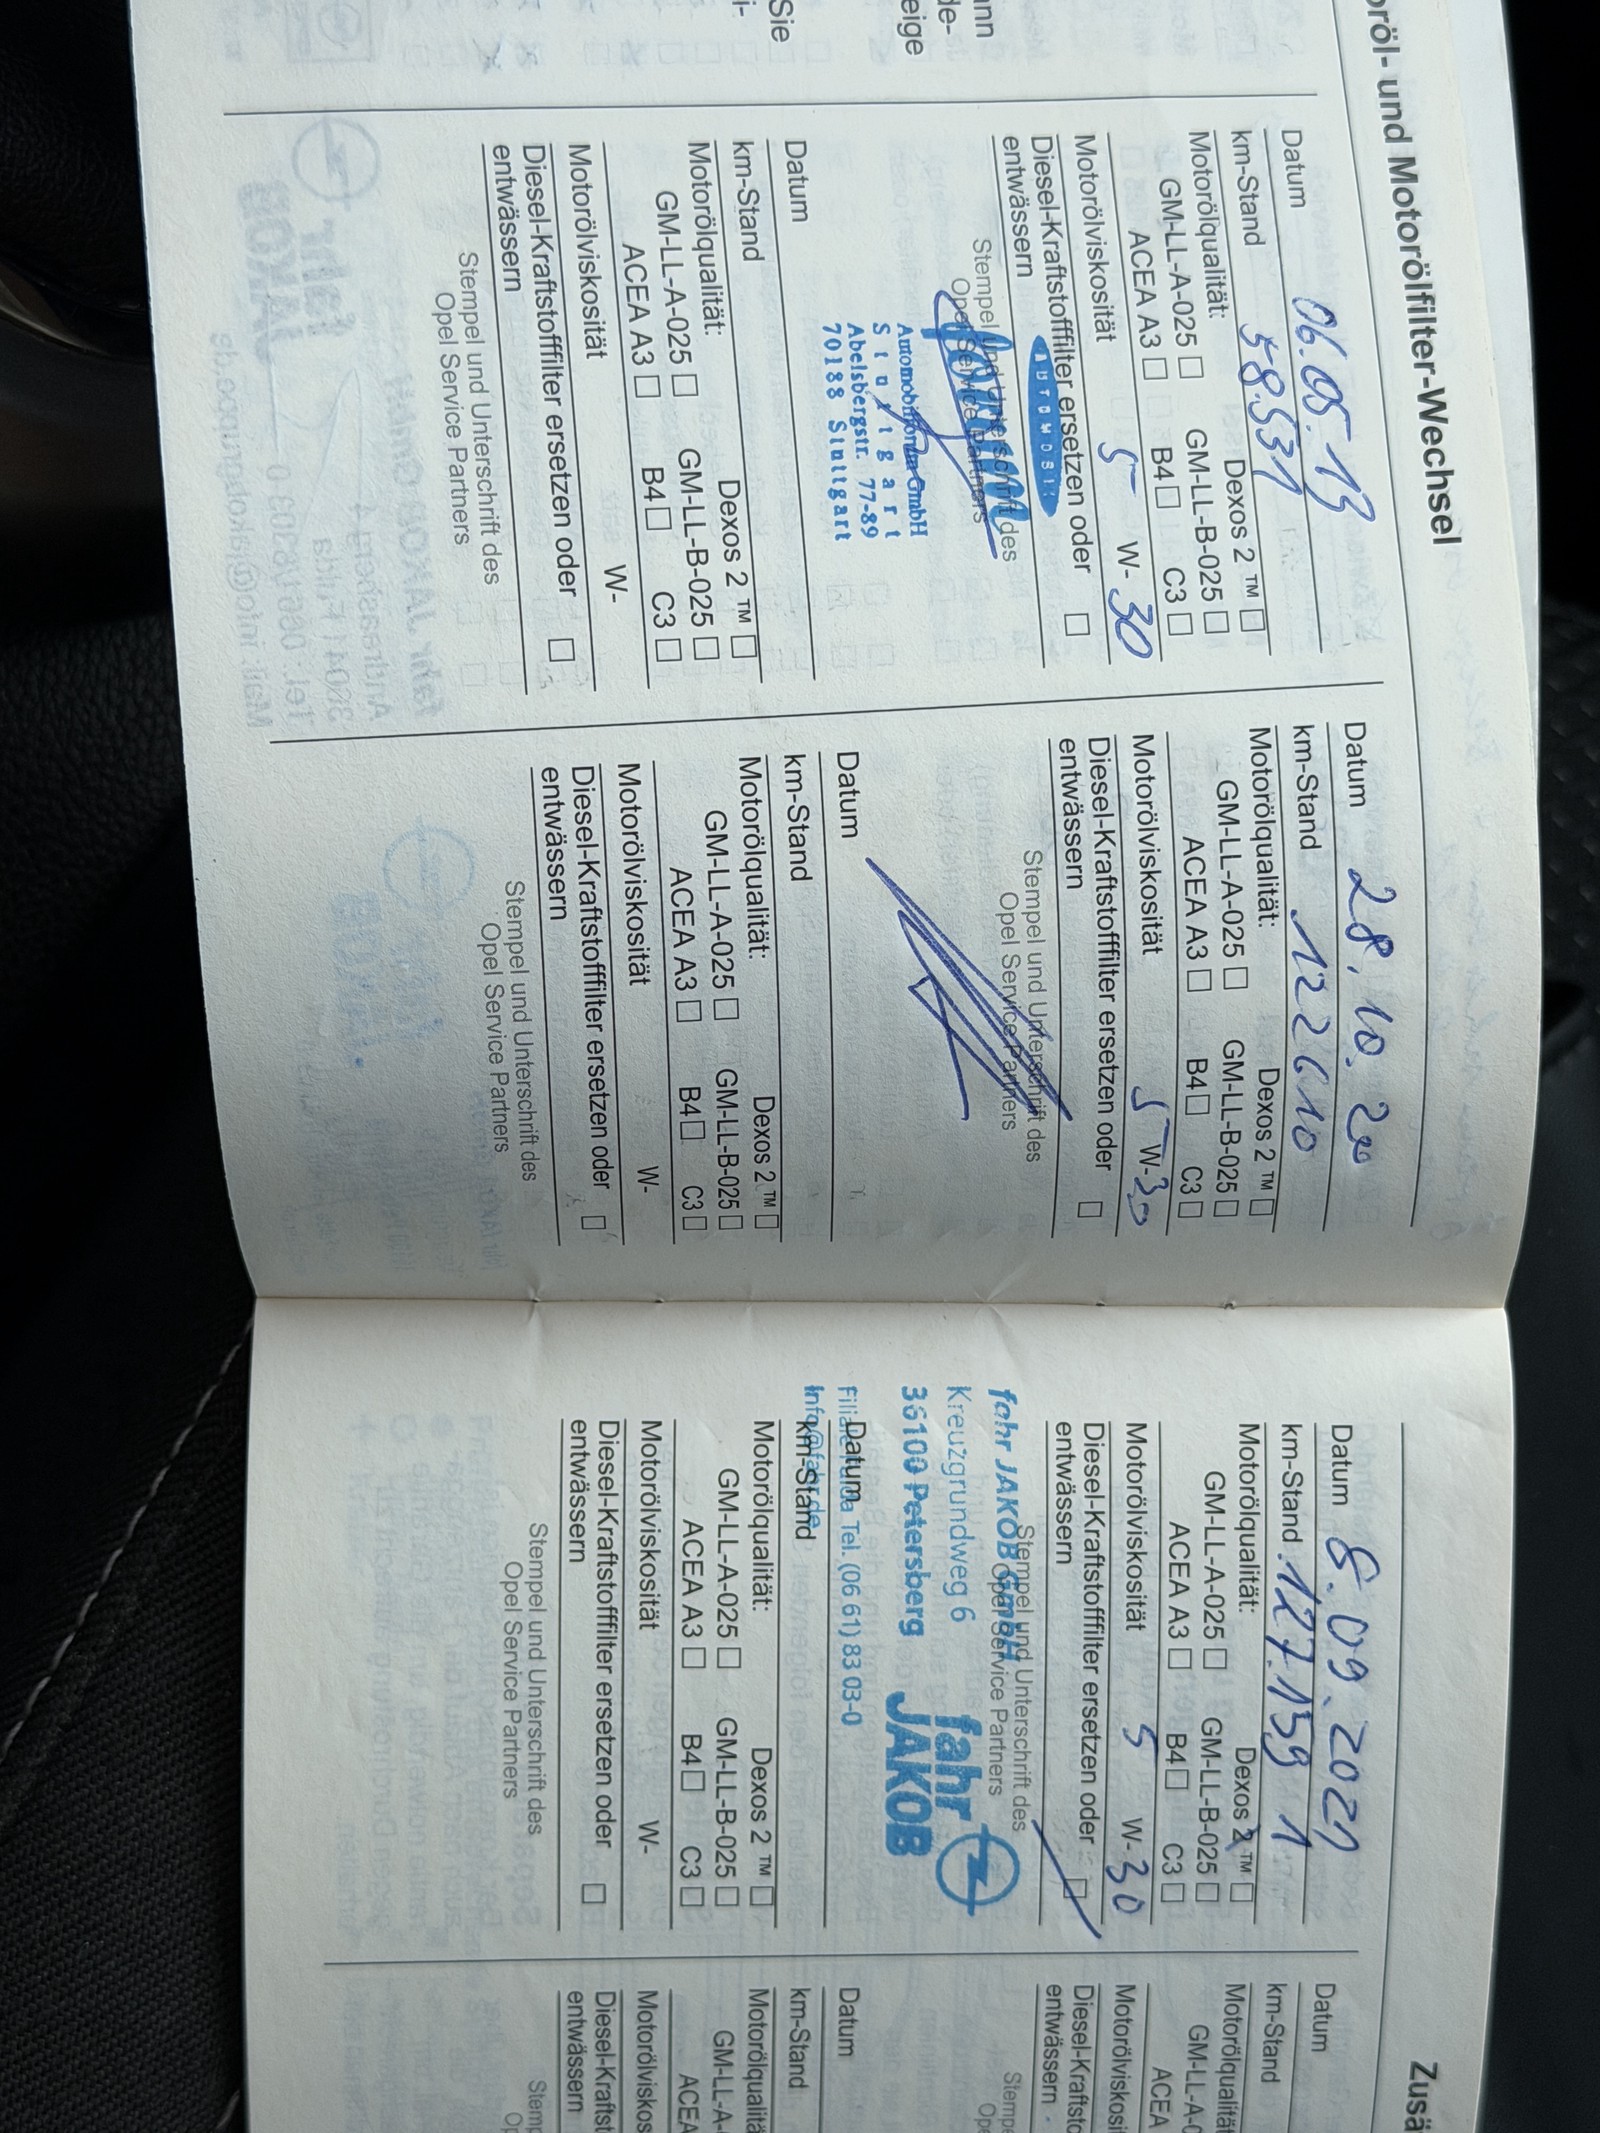 ann
de-
eige
Sie
i-
oröl- und Motorölfilter-Wechsel
Datum 06.05.13
km-Stand 58.531
Motorölqualität: Dexos 2 ™ ☐
GM-LL-A-025 ☐ GM-LL-B-025 ☐
ACEA A3 ☐ B4 ☐ C3 ☐
Motorölviskosität 5 W-30
Diesel-Kraftstofffilter ersetzen oder
entwässern ☐
Stempel und Unterschrift des
Opel Service Partners
Automobilforum GmbH
Stuttgart
Abelsbergstr. 77-89
70188 Stuttgart
Datum
km-Stand
Motorölqualität: Dexos 2 ™ ☐
GM-LL-A-025 ☐ GM-LL-B-025 ☐
ACEA A3 ☐ B4 ☐ C3 ☐
Motorölviskosität W-
Diesel-Kraftstofffilter ersetzen oder
entwässern ☐
Stempel und Unterschrift des
Opel Service Partners
Datum 28.10.20
km-Stand 122610
Motorölqualität: Dexos 2 ™ ☐
GM-LL-A-025 ☐ GM-LL-B-025 ☐
ACEA A3 ☐ B4 ☐ C3 ☐
Motorölviskosität 5 W-30
Diesel-Kraftstofffilter ersetzen oder
entwässern ☐
Stempel und Unterschrift des
Opel Service Partners
Datum
km-Stand
Motorölqualität: Dexos 2 ™ ☐
GM-LL-A-025 ☐ GM-LL-B-025 ☐
ACEA A3 ☐ B4 ☐ C3 ☐
Motorölviskosität W-
Diesel-Kraftstofffilter ersetzen oder
entwässern ☐
Stempel und Unterschrift des
Opel Service Partners
Zusä
Datum 8.09.2021
km-Stand 127.159
Motorölqualität: Dexos 2 ™ ☐
GM-LL-A-025 ☐ GM-LL-B-025 ☐
ACEA A3 ☐ B4 ☐ C3 ☐
Motorölviskosität 5 W-30
Diesel-Kraftstofffilter ersetzen oder
entwässern ☐
Stempel und Unterschrift des
Opel Service Partners
fahr JAKOB GmbH
Kreuzgrundweg 6
36100 Petersberg
Tel. (06 61) 83 03-0
fahr
JAKOB
Datum
km-Stand
Motorölqualität: Dexos 2 ™ ☐
GM-LL-A-025 ☐ GM-LL-B-025 ☐
ACEA A3 ☐ B4 ☐ C3 ☐
Motorölviskosität W-
Diesel-Kraftstofffilter ersetzen oder
entwässern ☐
Stempel und Unterschrift des
Opel Service Partners
Datum
km-Stand
Motorölqualität
GM-LL-A-0
ACEA
Motorölviskosi
Diesel-Kraftsto
entwässern
Stempe
Ope
Datum
km-Stand
Motorölqualitä
GM-LL-A-
ACEA
Motorölviskos
Diesel-Kraftst
entwässern
Stemp
Op